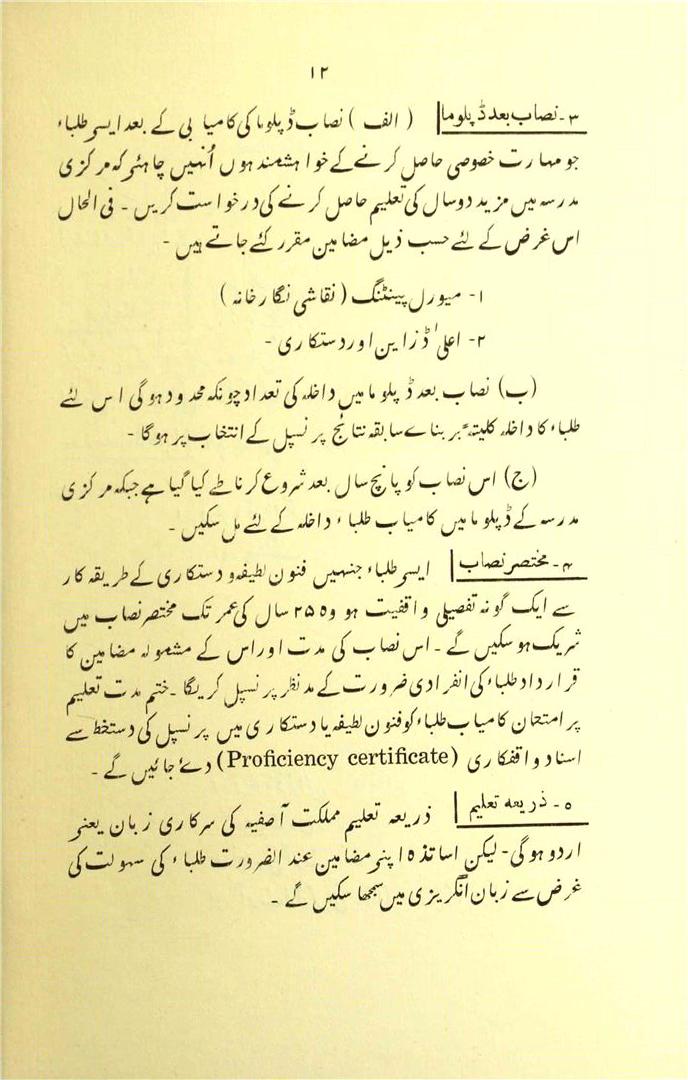 ۱۲
۳- نصاب بعد ڈپلوما (الف) نصاب ڈپلوما کی کامیابی کے بعد ایسے طلباء
جو مہارت خصوصی حاصل کرنے کے خواہشمند ہوں اُنہیں چاہئے کہ مرکزی
مدرسہ میں مزید دو سال کی تعلیم حاصل کرنے کی درخواست کریں - فی الحال
اس غرض کے لئے حسب ذیل مضامین مقرر کئے جاتے ہیں -
۱- میورل پینٹنگ (نقاشی نگار خانہ)
۲- اعلیٰ ڈزاین اور دستکاری -
(ب) نصاب بعد ڈپلوما میں داخلہ کی تعداد چونکہ محدود ہوگی اس لئے
طلباء کا داخلہ کلیتہً بر بناے سابقہ نتائج پرنسپل کے انتخاب پر ہوگا -
(ج) اس نصاب کو پانچ سال بعد شروع کرنا طے کیا گیا ہے جبکہ مرکزی
مدرسہ کے ڈپلوما میں کامیاب طلباء داخلہ کے لئے مل سکیں -
۴- مختصر نصاب ایسے طلباء جنہیں فنون لطیفہ و دستکاری کے طریقہ کار
سے ایک گونہ تفصیلی واقفیت ہو وہ ۲۵ سال کی عمر تک مختصر نصاب میں
شریک ہو سکیں گے - اس نصاب کی مدت اور اس کے مشمولہ مضامین کا
قرارداد طلباء کی انفرادی ضرورت کے مد نظر پرنسپل کریگا - ختم مدت تعلیم
پر امتحان کامیاب طلباء کو فنون لطیفہ یا دستکاری میں پرنسپل کی دستخط سے
اسناد واقفکاری (Proficiency certificate) دئے جائیں گے -
۵- ذریعہ تعلیم ذریعہ تعلیم مملکت آصفیہ کی سرکاری زبان یعنے
اردو ہوگی - لیکن اساتذہ اپنے مضامین عند الضرورت طلباء کی سہولت کی
غرض سے زبان انگریزی میں سمجھا سکیں گے -